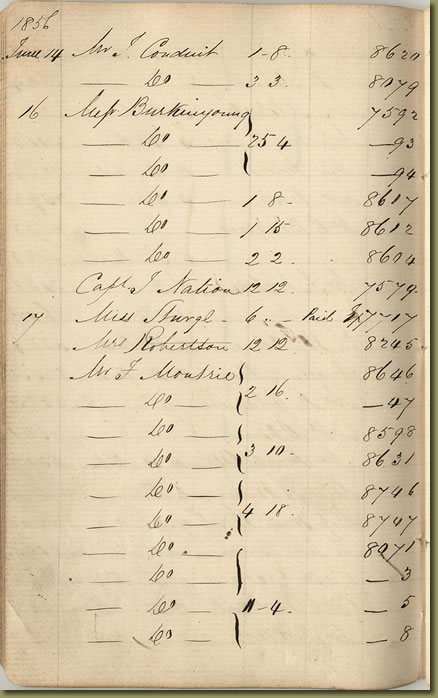 1856
June 14 Mr J. Conduit 1-8. 8620
— Do — 3 3. 8079
16 Messrs Burkinyoung 7592
— Do — 25 4 —93
— Do — —94
— Do — 1 8- 8617
— Do — 1 15 8612
— Do — 2 2. 8604
Capt. J Nation 12 12. 7579.
17 Miss Sturgl- 6 " - Paid 7717
Mrs Robertson 12 12 8245
Mr F. Moutrie 8646
— Do — 2 16. —47
— Do — 8598
— Do — 3 10- 8631
— Do — 8746
— Do — 4 18. 8747
— Do — 8071
— Do — — 3
— Do — 11-4. — 5
— Do — — 8